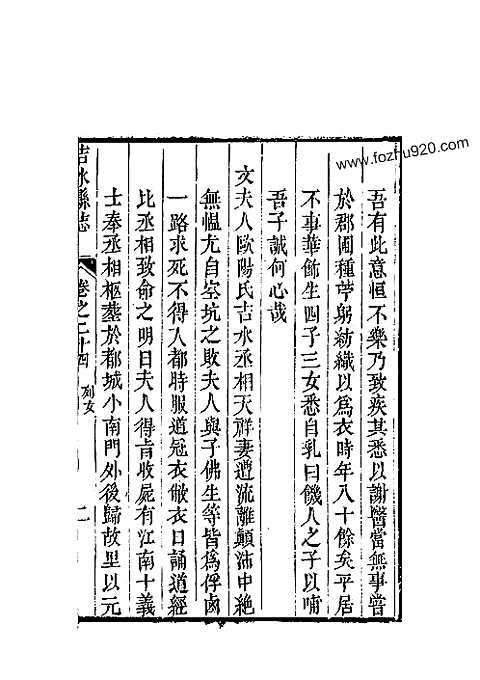 www.fozhu920.com
吾有此意恒不樂乃致疾其悉以謝醫當無事嘗
於郡圃種苧躬紡織以爲衣時年八十餘矣平居
不事華飾生四子三女悉自乳曰饑人之子以哺
吾子誠何心哉
文夫人歐陽氏吉水丞相天祥妻遭流離顛沛中絶
無慍尤自空坑之敗夫人與子佛生等皆爲俘鹵
一路求死不得入都時服道冠衣敝衣日誦道經
比丞相致命之明日夫人得旨收屍有江南十義
士奉丞相柩塟於都城小南門外後歸故里以元
吉水縣志
卷之二十四 列女
二